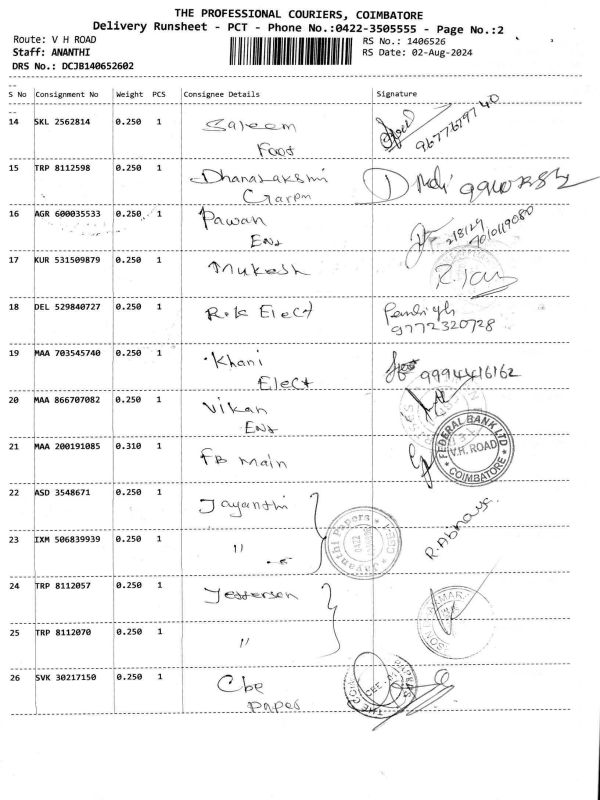 THE PROFESSIONAL COURIERS, COIMBATORE
Delivery Runsheet - PCT - Phone No.:0422-3505555 - Page No.:2
Route: V H ROAD
RS No.: 1406526
Staff: ANANTHI
RS Date: 02-Aug-2024
DRS No.: DCJB140652602
S No Consignment No Weight PCS Consignee Details Signature
14 SKL 2562814 0.250 1 Saleem 9677679740
Foot
15 TRP 8112598 0.250 1 Dhanalakshmi
16 AGR 600035533 0.250 1 Pawan 2/8/24
Ent 7010119080
17 KUR 531509879 0.250 1 Mukesh
18 DEL 529840727 0.250 1 R.K Elect
9772320728
19 MAA 703545740 0.250 1 Khani 9994416162
Elect
20 MAA 866707082 0.250 1 Vikan
Ent
21 MAA 200191085 0.310 1 FB Main FEDERAL BANK LTD V.H. ROAD COIMBATORE
22 ASD 3548671 0.250 1 Jayanthi
Jayanthi Papers CBE
23 IXM 506839939 0.250 1 "
24 TRP 8112057 0.250 1 Jefferson
25 TRP 8112070 0.250 1 "
26 SVK 30217150 0.250 1 Cbe
paper